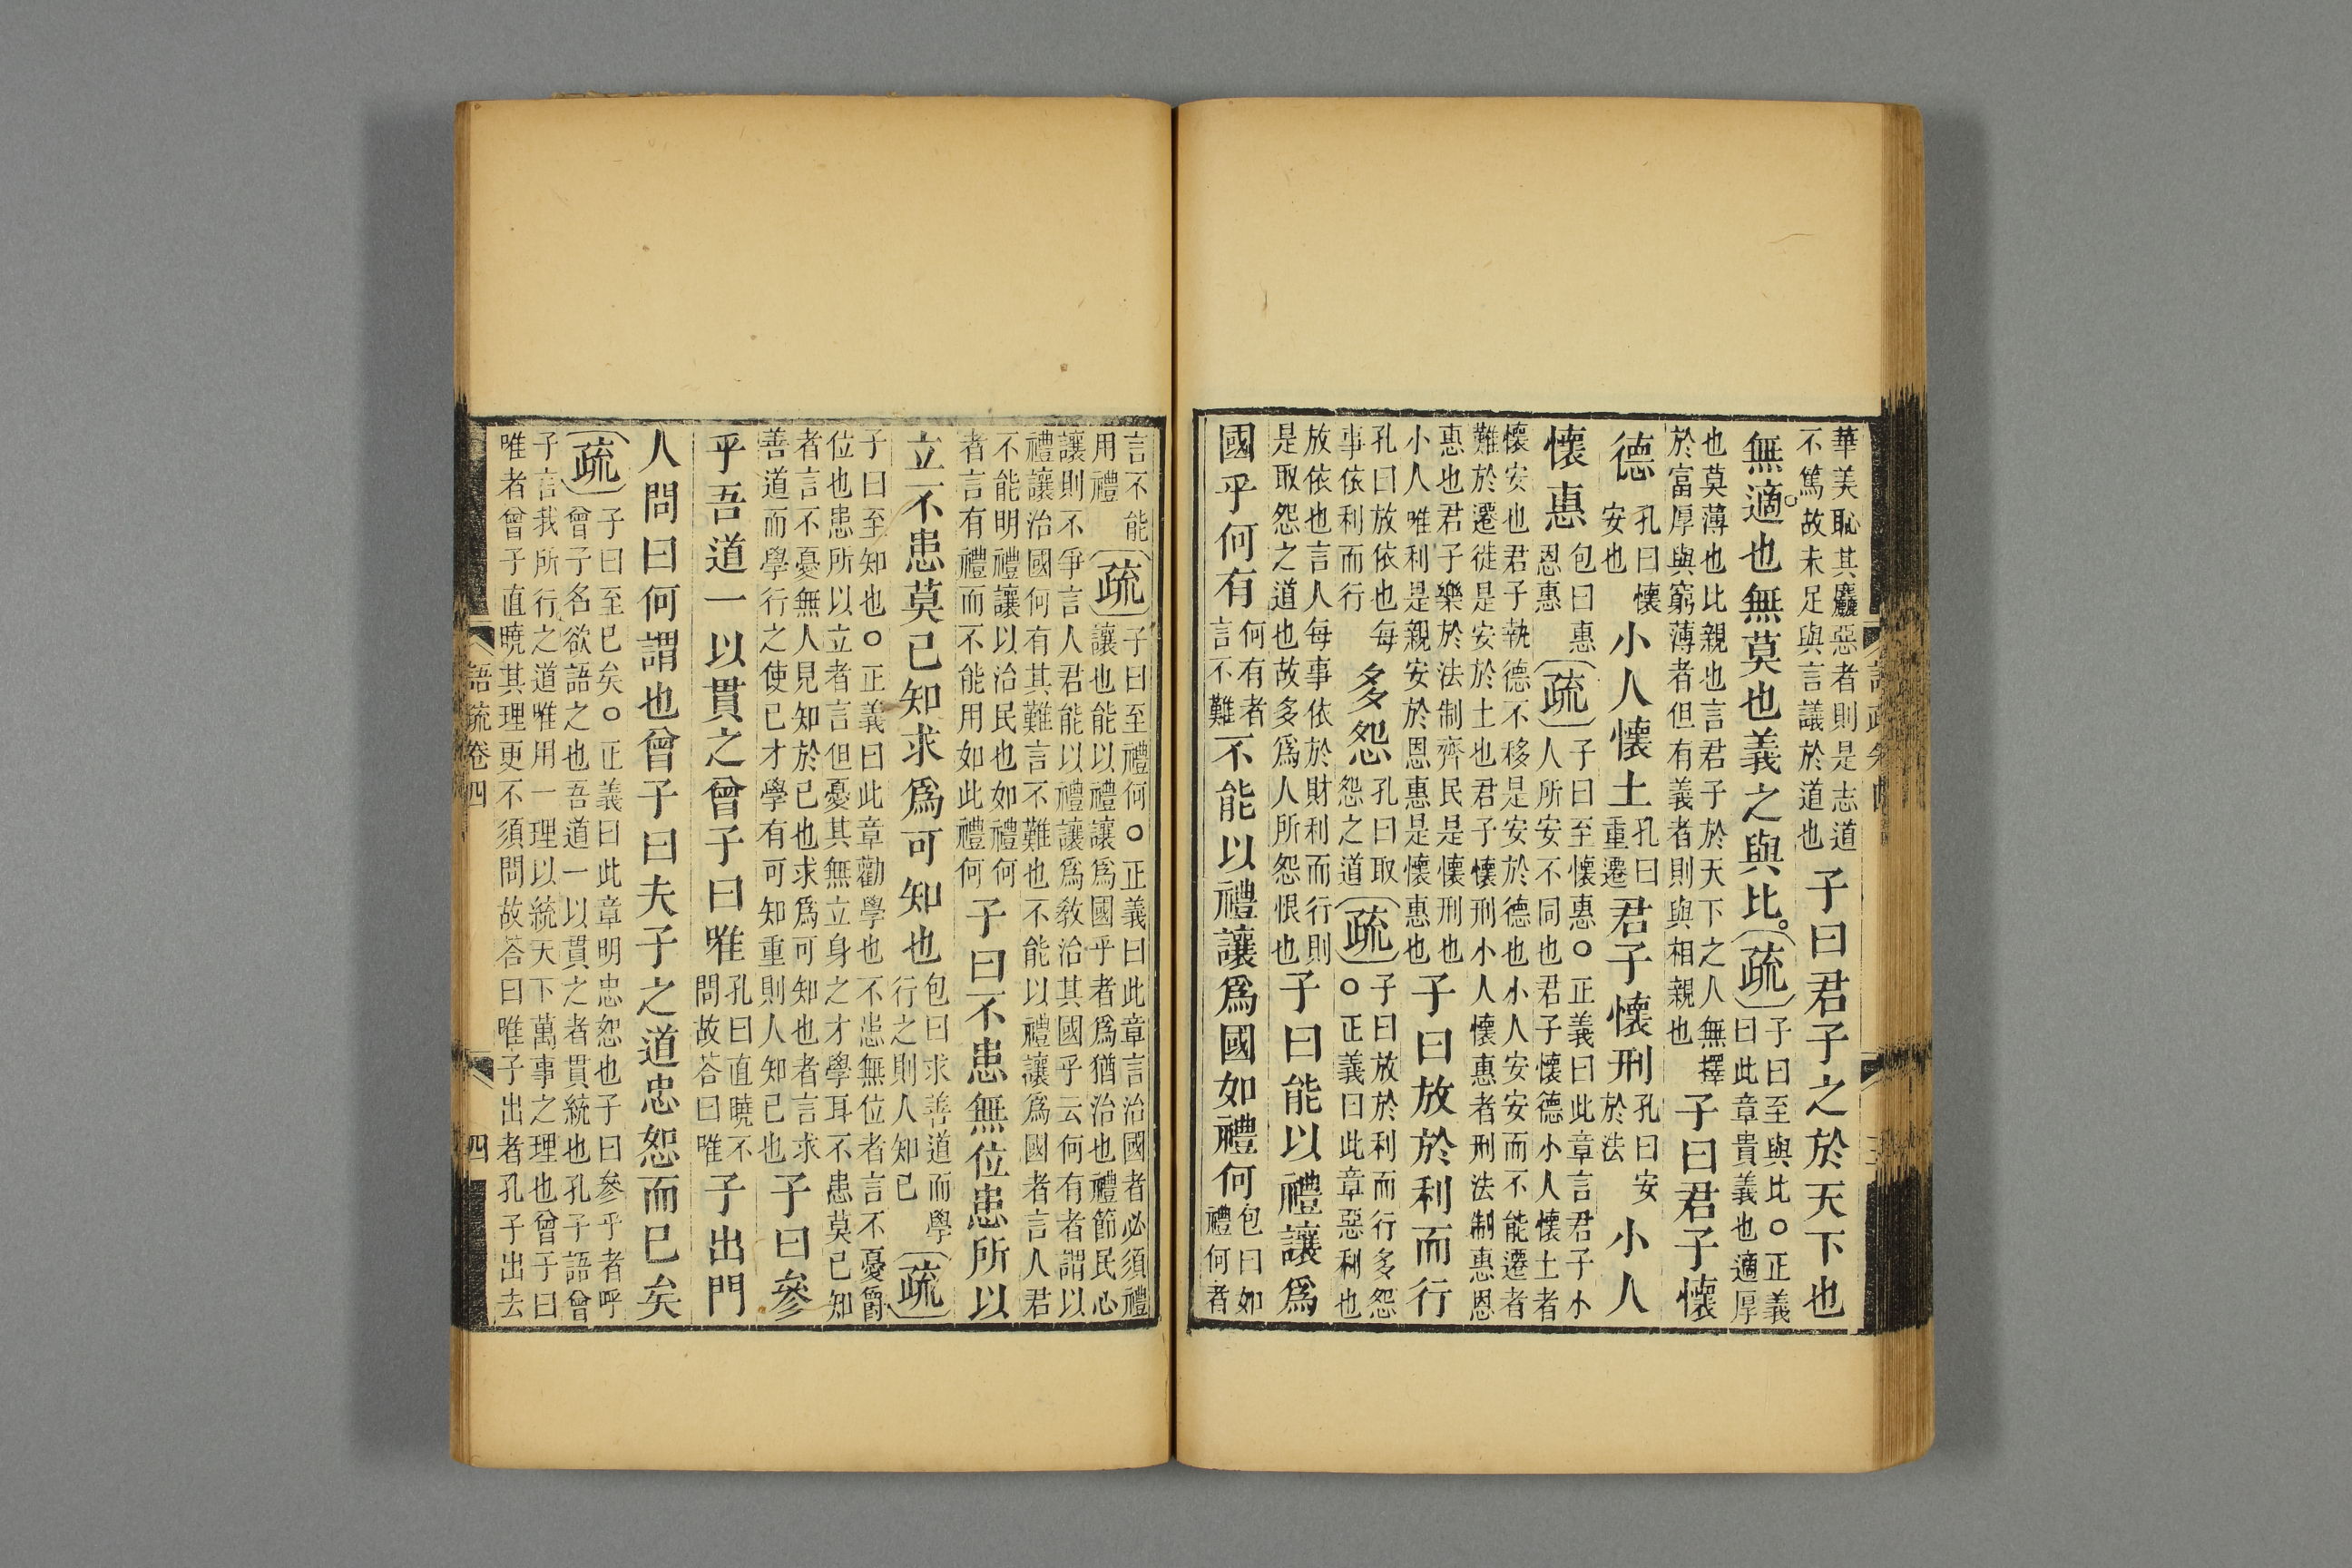 華美恥其麤惡者則是志道不篤故未足與言議於道也子曰君子之於天下也
無適也無莫也義之與比。疏子曰至與比○正義曰此章貴義也適厚
也莫薄也比親也言君子於天下之人無擇於富厚與窮薄者但有義者則與相親也子曰君子懷
德孔曰懷安也小人懷土孔曰重遷君子懷刑孔曰安於法小人
懷惠包曰惠恩惠疏子曰至懷惠○正義曰此章言君子小人所安不同也君子懷德小人懷土者
懷安也君子執德不移是安於德也小人安安而不能遷者難於遷徙是安於土也君子懷刑小人懷惠者刑法制惠恩
惠也君子樂於法制齊民是懷刑也小人唯利是親安於恩惠是懷惠也子曰放於利而行
孔曰放依也每事依利而行多怨孔曰取怨之道疏子曰放於利而行多怨○正義曰此章惡利也
放依也言人每事依於財利而行則是取怨之道也故多爲人所怨恨也子曰能以禮讓爲
國乎何有何有者言不難不能以禮讓爲國如禮何包曰如禮何者
言不能用禮疏子曰至禮何○正義曰此章言治國者必須禮讓也能以禮讓爲國乎者爲猶治也禮節民心
讓則不爭言人君能以禮讓爲教治其國乎云何有者謂以禮讓治國何有其難言不難也不能以禮讓爲國者言人君
不能明禮讓以治民也如禮何者言有禮而不能用如此禮何子曰不患無位患所以
立不患莫已知求爲可知也包曰求善道而學行之則人知已疏
子曰至知也○正義曰此章勸學也不患無位者言不憂爵位也患所以立者言但憂其無立身之才學耳不患莫已知
者言不憂無人見知於已也求爲可知也者言求善道而學行之使已才學有可知重則人知已也子曰參
乎吾道一以貫之曾子曰唯孔曰直曉不問故荅曰唯子出門
人問曰何謂也曾子曰夫子之道忠恕而已矣
疏子曰至已矣○正義曰此章明忠恕也子曰參乎者呼曾子名欲語之也吾道一以貫之者貫統也孔子語曾
子言我所行之道唯用一理以統天下萬事之理也曾子曰唯者曾子直曉其理更不須問故荅曰唯子出者孔子出去
語疏卷四
四